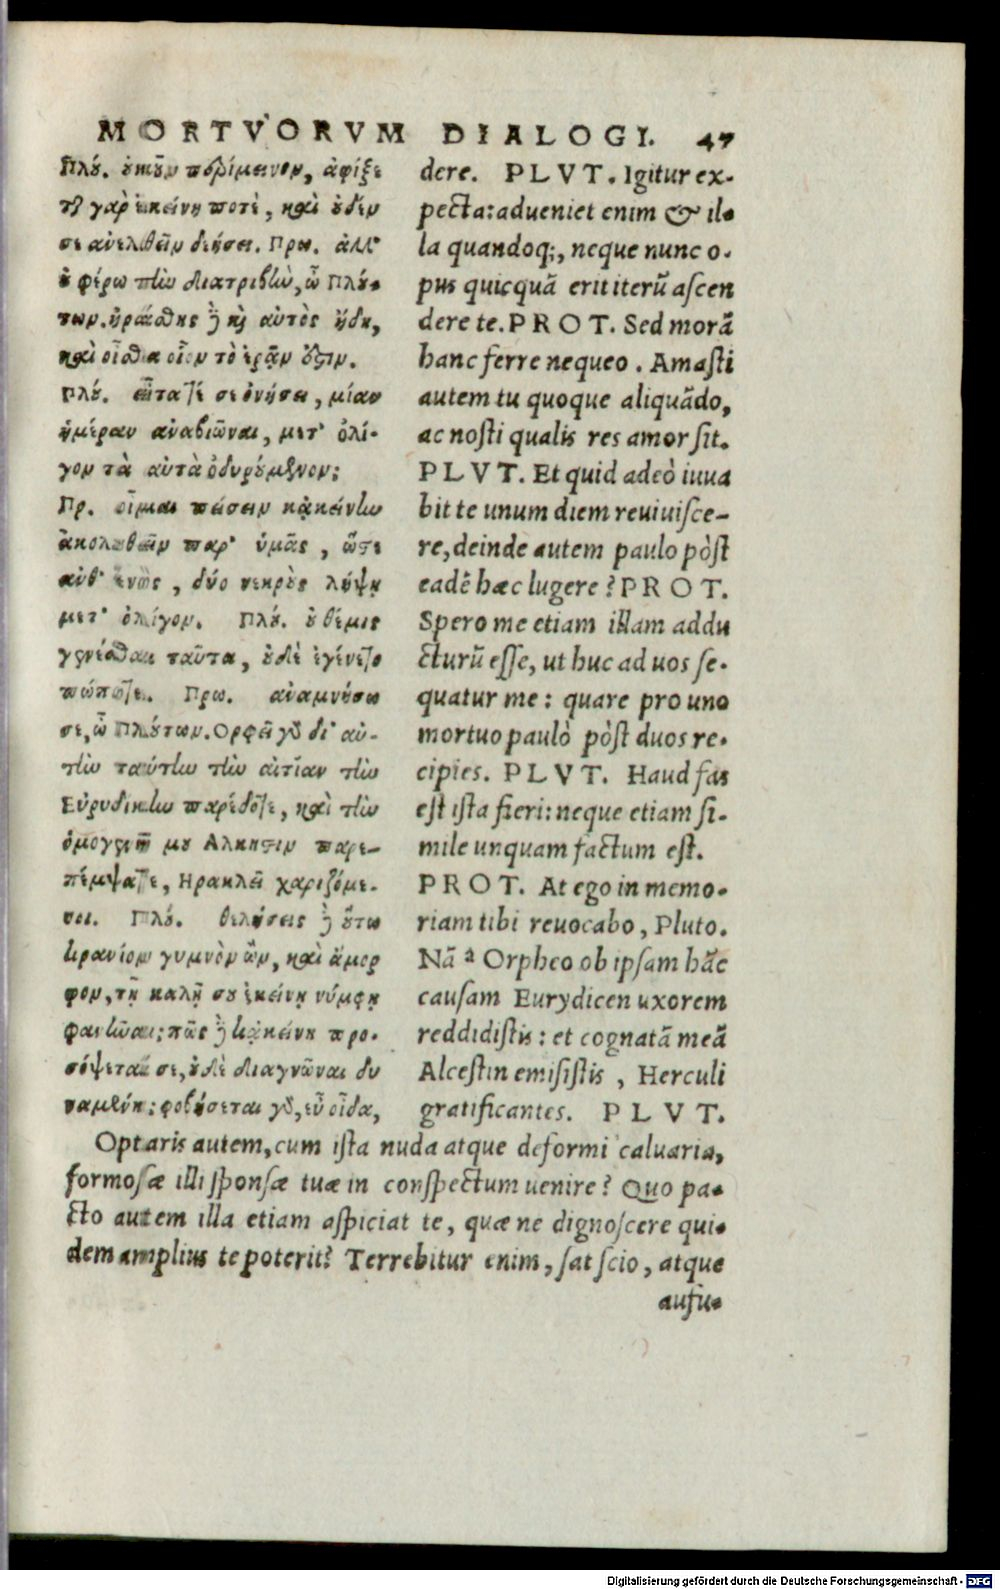 MORTVORVM DIALOGI. 47
Πλό. ὀκοῦν περίμεινον, ἀφίξε
τ γὰρ ἐκείνη ποτὲ, καὶ ὀδέν
σε ἀνελθεῖν δεήσει. Πρω. ἀλλ'
ὀ φέρω τὴν διατριβὴν, ὦ Πλού-
των. ἠράσθης ἢ κὶ αὐτὸς ἤδη,
καὶ οἶσθα οἷον τὸ ἐρᾷν ὄξιν.
Πλό. εἶτα τί σε ὀνήσει, μίαν
ἡμέραν ἀναβιῶναι, μετ' ὀλί-
γον τὰ αὐτὰ ὀδυρόμενον;
Πρ. οἶμαι πείσειν κᾀκείνην
ἀκολουθεῖν παρ' ὑμᾶς, ὥστε
ἀνθ' ἑνὸς, δύο νεκροὺς λήψῃ
μετ' ὀλίγον. Πλό. ὀ θέμις
γενέσθαι ταῦτα, ὀδὲ ἐγένετο
πώποτε. Πρω. ἀναμνήσω
σε, ὦ Πλούτων. Ορφεῖ γὸ δι' αὐ-
τὴν ταύτην τὴν αἰτίαν τὴν
Εὐρυδίκην παρέδοτε, καὶ τὴν
ὁμογενῆ μου Αλκηστιν παρε-
πέμψατε, Ηρακλεῖ χαριζόμε-
νοι. Πλό. θελήσεις ἢ ὅτω
κρανίον γυμνὸν ὢν, καὶ ἄμορ
φον, τῇ καλῇ σου ἐκείνῃ νύμφῃ
φανῆναι; πῶς ἢ κᾀκείνη προ-
σόψεταί σε, ὀδὲ διαγνῶναι δυ
ναμένη; φοβήσεται γὸ, εὖ οἶδα,
dere. PLVT. Igitur ex-
pecta: adueniet enim & il-
la quandoq;, neque nunc o-
pus quicquã erit iterũ ascen
dere te. PROT. Sed morã
hanc ferre nequeo. Amasti
autem tu quoque aliquãdo,
ac nosti qualis res amor sit.
PLVT. Et quid adeò iuua
bit te unum diem reuiuisce-
re, deinde autem paulo pòst
eadẽ hæc lugere? PROT.
Spero me etiam illam addu
cturũ esse, ut huc ad uos se-
quatur me: quare pro uno
mortuo paulò pòst duos re-
cipies. PLVT. Haud fas
est ista fieri: neque etiam si-
mile unquam factum est.
PROT. At ego in memo-
riam tibi reuocabo, Pluto.
Nã a Orpheo ob ipsam hãc
causam Eurydicen uxorem
reddidistis: et cognatã meã
Alcestin emisistis, Herculi
gratificantes. PLVT.
Optaris autem, cum ista nuda atque deformi caluaria,
formosæ illi sponsæ tuæ in conspectum uenire? Quo pa-
cto autem illa etiam aspiciat te, quæ ne dignoscere qui-
dem amplius te poterit? Terrebitur enim, sat scio, atque
ausu-
Digitalisierung gefördert durch die Deutsche Forschungsgemeinschaft - DFG